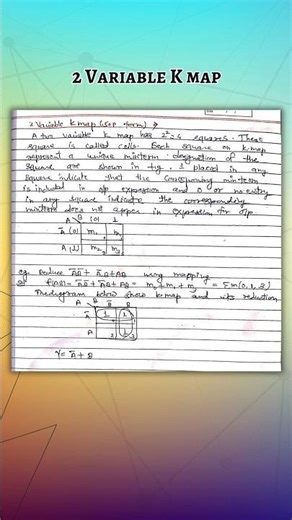 2 VARIABLE K MAP
2 Variable K map (SOP form) →
A two variable K map has 2² = 4 squares. These
square is called cells. Each square on k-map
represent a unique minterm. designation of the
square are shown in fig. 1 placed in any
square indicate that the corresponding minterm
is included in o/p expression and 0 or no entry
in any square indicate the corresponding
minterm does not appear in expression for o/p.
A B (0) 1
Ā (0) m₀ m₁
A (1) m₂ m₃
eg. Reduce ĀB̄ + ĀB + AB using mapping
f(AB) = ĀB̄ + ĀB + AB = m₀ + m₁ + m₃ = Σm(0,1,3)
The diagram below show k-map and its reduction
A B B̄ B
Ā 1 1
A 2 1 3
Y = Ā + B